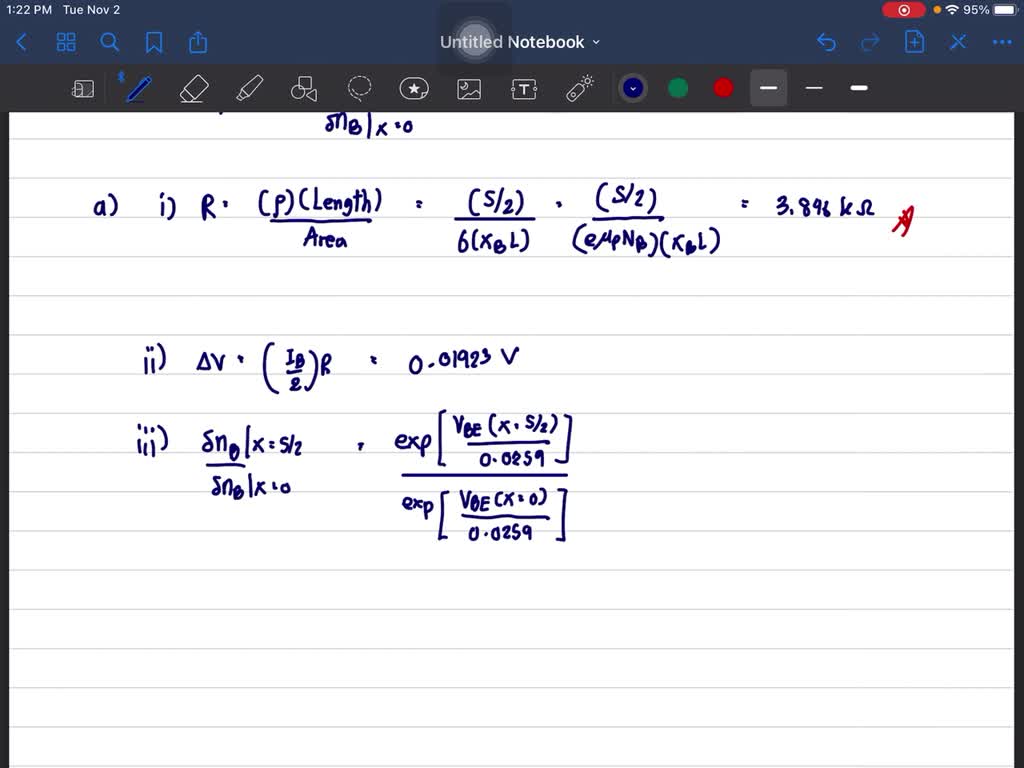 1:22 PM Tue Nov 2 95%
Untitled Notebook
δn_B|x=0
a) i) R = (ρ)(Length)/Area = (S/2)/6(x_B L) = (S/2)/(eμpN_B)(x_B L) = 3.846 kΩ
ii) ΔV = (I_B/2)R = 0.01923 V
iii) δn_B|x=S/2 / δn_B|x=0 = exp[V_BE(x=S/2)/0.0259] / exp[V_BE(x=0)/0.0259]